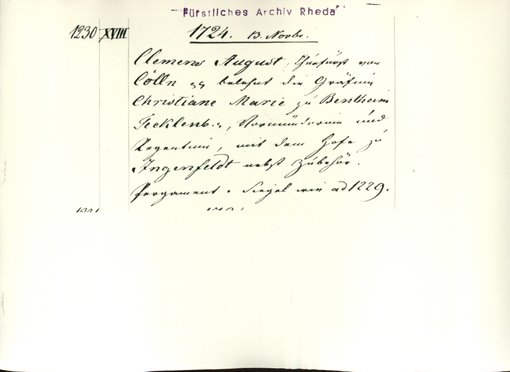 Fürstliches Archiv Rheda
1230 XXVIII 1724. 13. Novbr.
Clemens August, Churfürst von
Cölln belehnt die Gräfin
Christiane Marie zu Bentheim
Tecklenb., Vormünderin und
Regentin, mit dem Hofe zu
Ingenfeldt nebst Zubehör.
Pergament u. Siegel wie ad 1229.